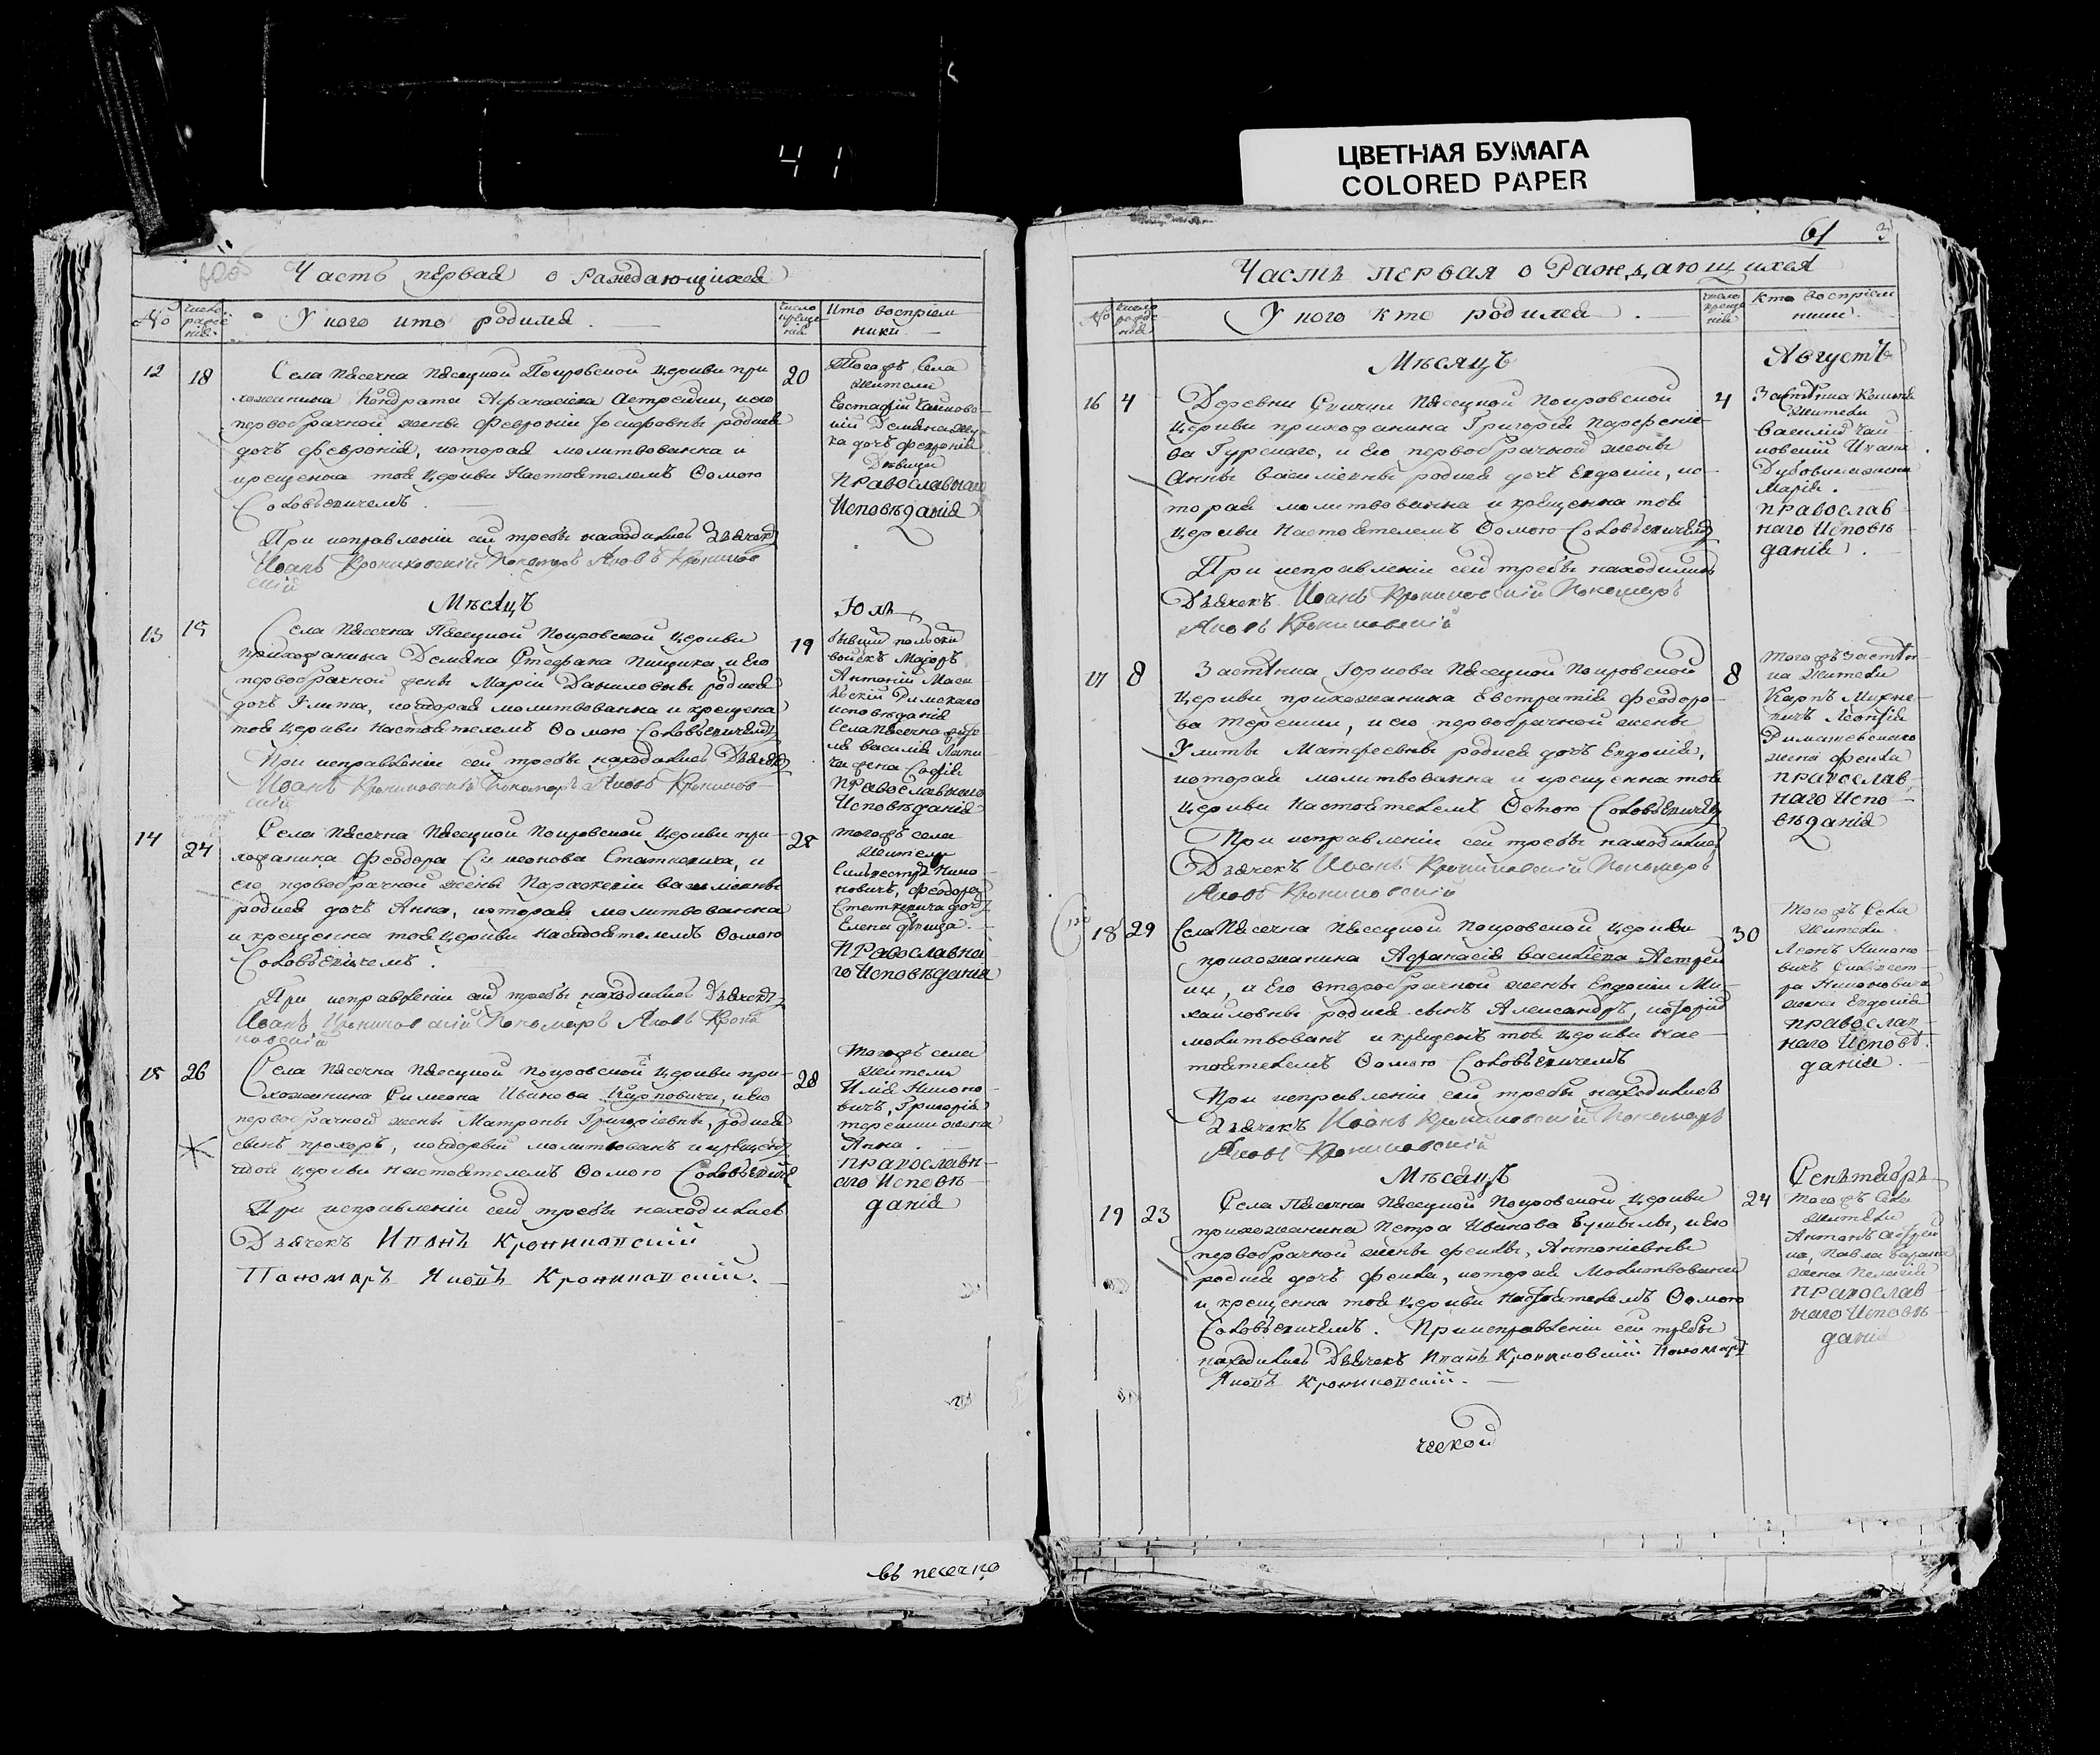 41
ЦВЕТНАЯ БУМАГА
COLORED PAPER
Часть первая о Раждающихся
№
число рожде нія
У кого кто родился
число креще нія
Кто воспріем
ники
12
18
Села Пясечна Пясецкой Покровской Церкви при
хожанина Кондрата Афанасіева Астрейки, и его
первобрачной жены Февроніи Іосифовны родися
дочь Февронія, которая молитвованна и
крещенна тоя Церкви Настоятелемъ Ѳомою
Соловьевичемъ.
При исправленіи сей требы находились Дьячекъ
Иоанъ Крониковскій Пономарь Яковъ Крониковс
скій
20
Тогожъ Села
жители
Евстафій
дочь Февронія
Дѣвица
Православнаго
Исповѣданія
Мѣсяцъ
Юль
13
15
Села Пясечна Пясецкой Покровской Церкви
прихожанина Демяна Стефана Пищика, и его
первобрачной жены Маріи Даниловны родися
дочь Улита, которая молитвованна и крещена
тоя Церкви Настоятелемъ Ѳомою Соловьевичемъ
При исправленіи сей требы находились Дьячекъ
Иоанъ Крониковскій Пономарь Яковъ Крониковс
скій
19
бывшій полскій
войскъ Маіоръ
Антоній
Римскаго
исповѣданія
Села Пясечна
Василія
жена Софія
Православнаго
Исповѣданія
14
24
Села Пясечна Пясецкой Покровской Церкви при-
хожанина Феодора Симеонова Статкевича, и
его первобрачной жены Параскевіи Васильевны
родися дочь Анна, которая молитвованна
и крещенна тоя Церкви Настоятелемъ Ѳомою
Соловьевичемъ.
При исправленіи сей требы находились Дьячекъ
Иоанъ Крониковскій Пономарь Яковъ Крони
ковскій
28
тогожъ села
жители
Сильвестръ Нико-
новичъ, Феодора
Статкевича дочь
Елена дѣвица.
Православна
го Исповѣданія
15
26
Села Пясечна Пясецкой Покровской Церкви при-
хожанина Симеона Иванова Карповича, и его
первобрачной жены Матроны Григоріевны, родися
сынъ Прохоръ, который молитвованъ и крещенъ
тоя Церкви Настоятелемъ Ѳомою Соловьевичемъ
При исправленіи сей требы находились
Дьячекъ Иванъ Крониковскій
Пономарь Яковъ Крониковскій.
28
тогожъ села
жители
Илія Никоно-
вичъ, Григорія
Терешки жена
Анна.
Православн-
аго Исповѣ-
данія
въ песечно
61
3
Часть первая о Раждающихся
№
число рожде нія
У кого кто родился
число креще нія
Кто воспріем
ники
Мѣсяцъ
Августъ
16
4
Деревни Пясецкой Покровской
Церкви прихожанина Григорія Парфеніе-
ва Гурскаго, и Его первобрачной жены
Анны Васильевны родися дочь Евдокія, ко-
торая молитвованна и крещенна тоя
Церкви Настоятелемъ Ѳомою Соловьевичемъ
При исправленіи сей требы находились
Дьячекъ Иоанъ Крониковскій Пономарь
Яковъ Крониковскій
4
жители
Василій Чай
ковскій Ивана
жена
Марія.
православ
наго Исповѣ
данія.
17
8
Застѣнка Юркова Пясецкой Покровской
Церкви прихожанина Евстратія Феодоро-
ва Терешки, и его первобрачной жены
Улиты Матфеевны родися дочь Евдокія,
которая молитвованна и крещенна тоя
Церкви Настоятелемъ Ѳомою Соловьевичемъ
При исправленіи сей требы находились
Дьячекъ Иоанъ Крониковскій Пономарь
Яковъ Крониковскій
8
тогожъ Застѣн
ка жители
Карпъ Михне-
вичъ Леонтія
Римашевскаго
жена Фекла
православ
наго Испо-
вѣданія
18
29
Села Пясечна Пясецкой Покровской Церкви
прихожанина Афанасія Василіева Астрей
ки, и Его второбрачной жены Евдокіи Ми-
хайловны родися сынъ Александръ, который
молитвованъ и крещенъ тоя Церкви Нас-
тоятелемъ Ѳомою Соловьевичемъ
При исправленіи сей требы находились
Дьячекъ Иоанъ Крониковскій Пономарь
Яковъ Крониковскій
30
тогожъ Села
жители
Леонъ Никоно-
вичъ Сильвест-
ра Никоновича
жена Евдокія
православ-
наго Исповѣ-
данія.
Мѣсяцъ
Сентябрь
19
23
Села Пясечна Пясецкой Покровской Церкви
прихожанина Петра Иванова и его
первобрачной жены Феклы, Антоніевны
родися дочь Фекла, которая молитвованна
и крещенна тоя Церкви Настоятелемъ Ѳомою
Соловьевичемъ. При исправленіи сей требы
находились Дьячекъ Иванъ Крониковскій Пономарь
Яковъ Крониковскій.
24
тогожъ Села
жители
Антонъ Астрей
ка, Павла
жена Пелагія
православ
наго Исповѣ
данія